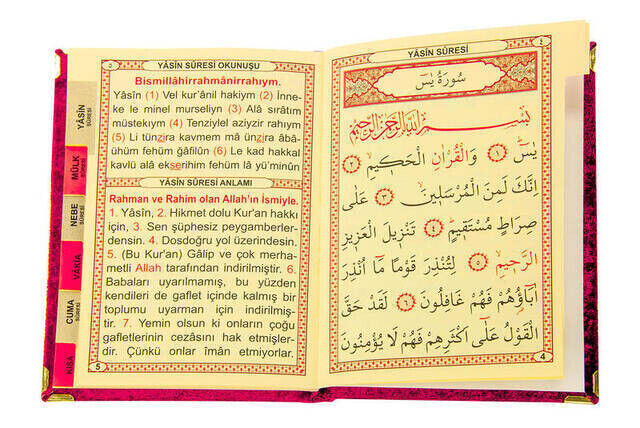 ٥
YÂSİN SÛRESİ OKUNUŞU
Bismillâhirrahmânirrahıym.
Yâsîn (1) Vel kur'ânil hakiym (2) İnne-
ke le minel murseliyn (3) Alâ sırâtım
müstekıym (4) Tenziylel aziyzir rahıym
(5) Li tünzira kavmem mâ ünzira âbâ-
ühüm fehüm ğafilûn (6) Le kad hakkal
kavlü alâ ekserihim fehüm lâ yü'minûn
YÂSİN SÛRESİ ANLAMI
Rahman ve Rahim olan Allah'ın İsmiyle.
1. Yâsîn, 2. Hikmet dolu Kur'an hakkı
için, 3. Sen şüphesiz peygamberler-
densin. 4. Dosdoğru yol üzerindesin.
5. (Bu Kur'an) Gâlip ve çok merha-
metli Allah tarafından indirilmiştir. 6.
Babaları uyarılmamış, bu yüzden
kendileri de gaflet içinde kalmış bir
toplumu uyarman için indirilmiş-
tir. 7. Yemin olsun ki onların çoğu
gafletlerinin cezasını hak etmişler-
dir. Çünkü onlar îmân etmiyorlar.
5
YÂSİN
SÛRESİ
MÜLK
SÛRESİ
NEBE
SÛRESİ
VÂKIA
CUMA
SÛRESİ
KISA
٤
YÂSİN SÛRESİ
سُورَةُ يٰسٓ
بِسْمِ اللّٰهِ الرَّحْمٰنِ الرَّحٖيمِ
يٰسٓ ﴿١﴾ وَالْقُرْاٰنِ الْحَكٖيمِ ﴿٢﴾
اِنَّكَ لَمِنَ الْمُرْسَلٖينَ ﴿٣﴾ عَلٰى
صِرَاطٍ مُسْتَقٖيمٍ ﴿٤﴾ تَنْزٖيلَ الْعَزٖيزِ
الرَّحٖيمِ ﴿٥﴾ لِتُنْذِرَ قَوْمًا مَٓا اُنْذِرَ
اٰبَٓاؤُهُمْ فَهُمْ غَافِلُونَ ﴿٦﴾ لَقَدْ حَقَّ
الْقَوْلُ عَلٰٓى اَكْثَرِهِمْ فَهُمْ لَا يُؤْمِنُونَ
4